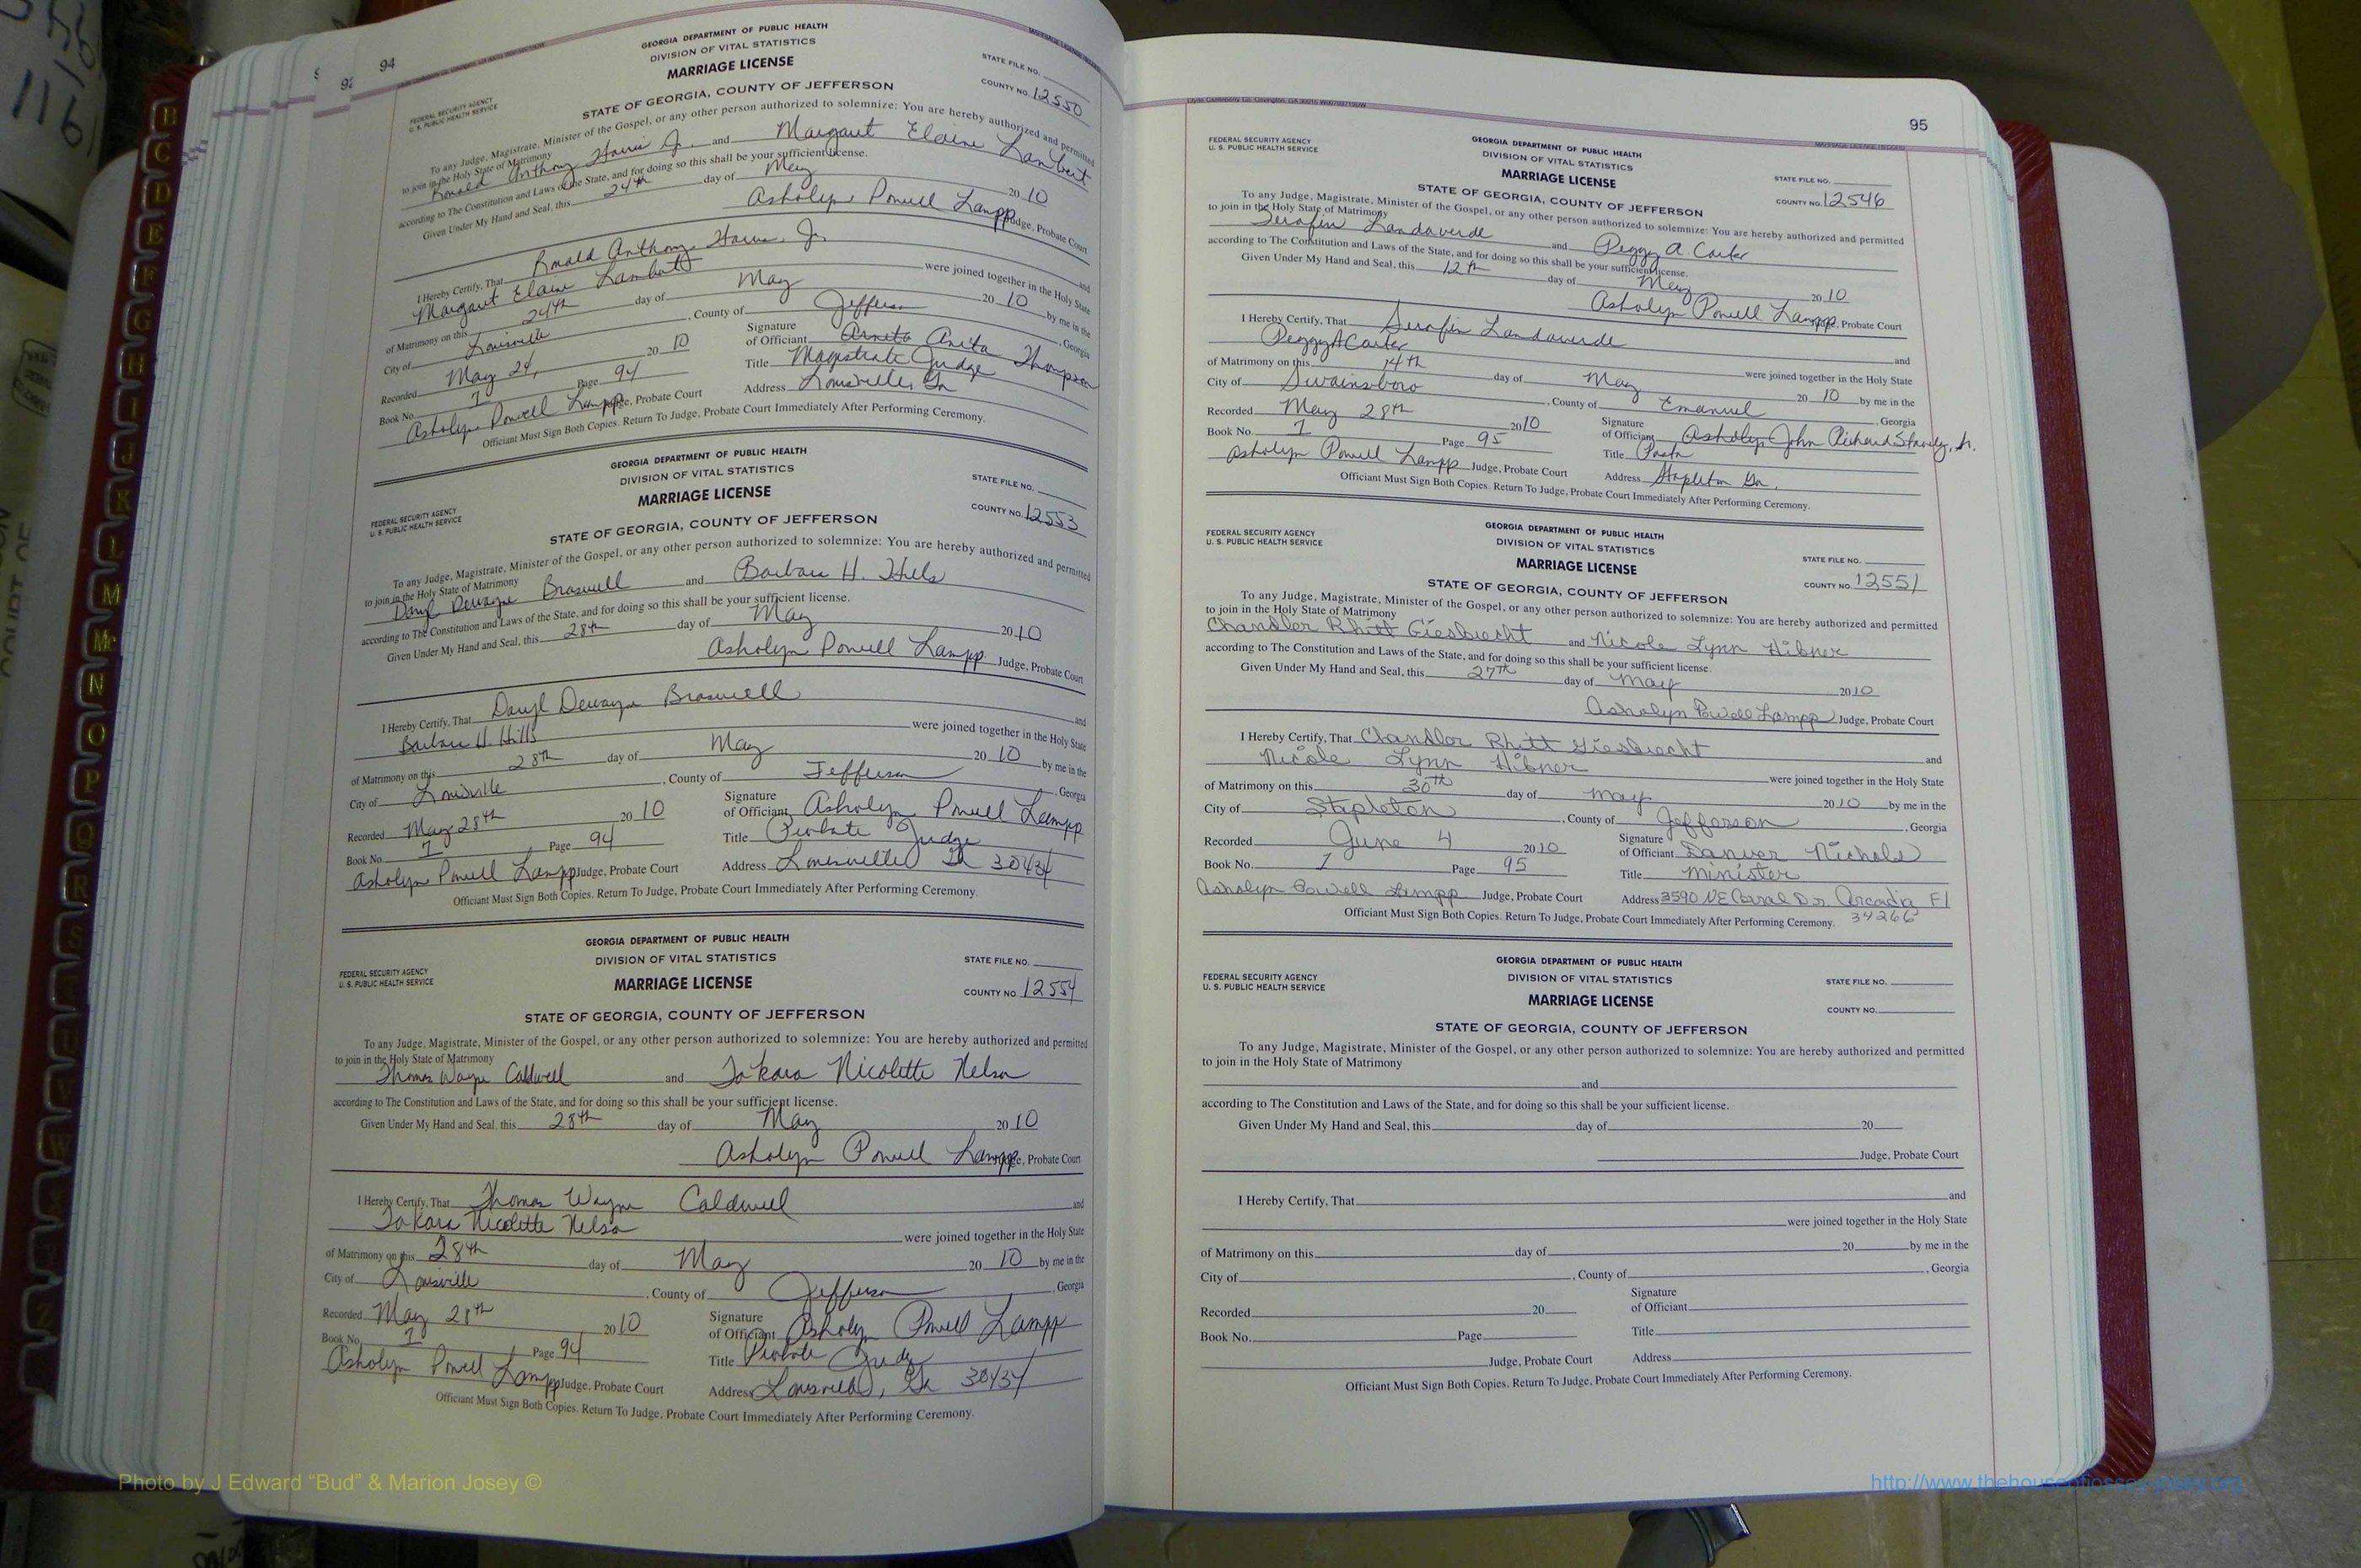 94
GEORGIA DEPARTMENT OF PUBLIC HEALTH
DIVISION OF VITAL STATISTICS
MARRIAGE LICENSE
STATE OF GEORGIA, COUNTY OF JEFFERSON
FEDERAL SECURITY AGENCY
U. S. PUBLIC HEALTH SERVICE
STATE FILE NO.
COUNTY NO. 12550
To any Judge, Magistrate, Minister of the Gospel, or any other person authorized to solemnize: You are hereby authorized and permitted
to join in the Holy State of Matrimony
Ronald Anthony Harris Jr. and Margaret Elaine Lambert
according to The Constitution and Laws of the State, and for doing so this shall be your sufficient license.
Given Under My Hand and Seal, this 24th day of May 20 10
Asholyn Powell Lampp Judge, Probate Court
I Hereby Certify, That Ronald Anthony Harris, Jr. and
Margaret Elaine Lambert were joined together in the Holy State
of Matrimony on this 24th day of May 20 10 by me in the
City of Louisville, County of Jefferson, Georgia
Recorded May 24, 20 10 Signature of Officiant Anita Thompson
Book No. 1 Page 94 Title Magistrate Judge
Asholyn Powell Lampp Judge, Probate Court Address Louisville, Ga
Officiant Must Sign Both Copies. Return To Judge, Probate Court Immediately After Performing Ceremony.
GEORGIA DEPARTMENT OF PUBLIC HEALTH
DIVISION OF VITAL STATISTICS
MARRIAGE LICENSE
STATE OF GEORGIA, COUNTY OF JEFFERSON
FEDERAL SECURITY AGENCY
U. S. PUBLIC HEALTH SERVICE
STATE FILE NO.
COUNTY NO. 12553
To any Judge, Magistrate, Minister of the Gospel, or any other person authorized to solemnize: You are hereby authorized and permitted
to join in the Holy State of Matrimony
Daryl Dewayne Braswell and Barbara H. Hills
according to The Constitution and Laws of the State, and for doing so this shall be your sufficient license.
Given Under My Hand and Seal, this 28th day of May 20 10
Asholyn Powell Lampp Judge, Probate Court
I Hereby Certify, That Daryl Dewayne Braswell and
Barbara H. Hills were joined together in the Holy State
of Matrimony on this 28th day of May 20 10 by me in the
City of Louisville, County of Jefferson, Georgia
Recorded May 28th 20 10 Signature of Officiant Asholyn Powell Lampp
Book No. 1 Page 94 Title Probate Judge
Asholyn Powell Lampp Judge, Probate Court Address Louisville Ga 30434
Officiant Must Sign Both Copies. Return To Judge, Probate Court Immediately After Performing Ceremony.
GEORGIA DEPARTMENT OF PUBLIC HEALTH
DIVISION OF VITAL STATISTICS
MARRIAGE LICENSE
STATE OF GEORGIA, COUNTY OF JEFFERSON
FEDERAL SECURITY AGENCY
U. S. PUBLIC HEALTH SERVICE
STATE FILE NO.
COUNTY NO. 12554
To any Judge, Magistrate, Minister of the Gospel, or any other person authorized to solemnize: You are hereby authorized and permitted
to join in the Holy State of Matrimony
Thomas Wayne Caldwell and Takara Nicolette Nelson
according to The Constitution and Laws of the State, and for doing so this shall be your sufficient license.
Given Under My Hand and Seal, this 28th day of May 20 10
Asholyn Powell Lampp Judge, Probate Court
I Hereby Certify, That Thomas Wayne Caldwell and
Takara Nicolette Nelson were joined together in the Holy State
of Matrimony on this 28th day of May 20 10 by me in the
City of Louisville, County of Jefferson, Georgia
Recorded May 28th 20 10 Signature of Officiant Asholyn Powell Lampp
Book No. 1 Page 94 Title Probate Judge
Asholyn Powell Lampp Judge, Probate Court Address Louisville, Ga 30434
Officiant Must Sign Both Copies. Return To Judge, Probate Court Immediately After Performing Ceremony.
95
GEORGIA DEPARTMENT OF PUBLIC HEALTH
DIVISION OF VITAL STATISTICS
MARRIAGE LICENSE
STATE OF GEORGIA, COUNTY OF JEFFERSON
FEDERAL SECURITY AGENCY
U. S. PUBLIC HEALTH SERVICE
STATE FILE NO.
COUNTY NO. 12546
To any Judge, Magistrate, Minister of the Gospel, or any other person authorized to solemnize: You are hereby authorized and permitted
to join in the Holy State of Matrimony
Serafin Landaverde and Peggy A. Carter
according to The Constitution and Laws of the State, and for doing so this shall be your sufficient license.
Given Under My Hand and Seal, this 12th day of May 20 10
Asholyn Powell Lampp, Probate Court
I Hereby Certify, That Serafin Landaverde
Peggy A Carter and
of Matrimony on this 14th day of May were joined together in the Holy State
City of Swainsboro, County of Emanuel 20 10 by me in the
Recorded May 28th 20 10 Signature of Officiant Asholyn John Richard Standly, Jr. Georgia
Book No. 1 Page 95 Title Pastor
Asholyn Powell Lampp Judge, Probate Court Address Stapleton Ga.
Officiant Must Sign Both Copies. Return To Judge, Probate Court Immediately After Performing Ceremony.
GEORGIA DEPARTMENT OF PUBLIC HEALTH
DIVISION OF VITAL STATISTICS
MARRIAGE LICENSE
STATE OF GEORGIA, COUNTY OF JEFFERSON
FEDERAL SECURITY AGENCY
U. S. PUBLIC HEALTH SERVICE
STATE FILE NO.
COUNTY NO. 12551
To any Judge, Magistrate, Minister of the Gospel, or any other person authorized to solemnize: You are hereby authorized and permitted
to join in the Holy State of Matrimony
Chandler Rhitt Giesbrecht and Nicole Lynn Hibner
according to The Constitution and Laws of the State, and for doing so this shall be your sufficient license.
Given Under My Hand and Seal, this 27th day of May 20 10
Asholyn Powell Lampp Judge, Probate Court
I Hereby Certify, That Chandler Rhitt Giesbrecht and
Nicole Lynn Hibner were joined together in the Holy State
of Matrimony on this 30th day of May 20 10 by me in the
City of Stapleton, County of Jefferson, Georgia
Recorded June 4 20 10 Signature of Officiant Danver Nichols
Book No. 1 Page 95 Title Minister
Asholyn Powell Lampp Judge, Probate Court Address 3590 NE Corral Dr. Arcadia Fl
34266
Officiant Must Sign Both Copies. Return To Judge, Probate Court Immediately After Performing Ceremony.
GEORGIA DEPARTMENT OF PUBLIC HEALTH
DIVISION OF VITAL STATISTICS
MARRIAGE LICENSE
STATE OF GEORGIA, COUNTY OF JEFFERSON
FEDERAL SECURITY AGENCY
U. S. PUBLIC HEALTH SERVICE
STATE FILE NO.
COUNTY NO.
To any Judge, Magistrate, Minister of the Gospel, or any other person authorized to solemnize: You are hereby authorized and permitted
to join in the Holy State of Matrimony
and
according to The Constitution and Laws of the State, and for doing so this shall be your sufficient license.
Given Under My Hand and Seal, this day of 20
Judge, Probate Court
I Hereby Certify, That and
were joined together in the Holy State
of Matrimony on this day of 20 by me in the
City of , County of , Georgia
Recorded 20 Signature of Officiant
Book No. Page Title
Judge, Probate Court Address
Officiant Must Sign Both Copies. Return To Judge, Probate Court Immediately After Performing Ceremony.
B
C
D
E
F
G
H
I
J
K
L
M
Mc
N
O
P
Q
R
S
Photo by J Edward “Bud” & Marion Josey ©
http://www.thehouseofjossey-josey.org